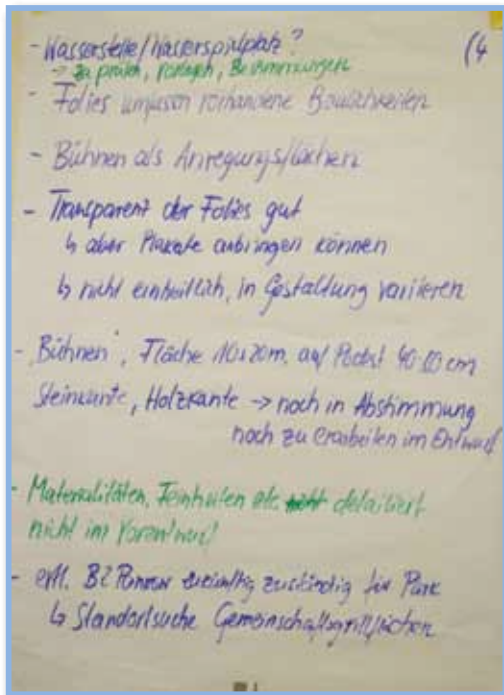 - Wasserstelle/Wasserspielplatz? (4
→ zu prüfen, Vorlagen, Bestimmungen
- Folies umfassen vorhandene Baulichkeiten
- Bühnen als Anregungsflächen
- Transparent der Folies gut
↳ aber Plakate anbringen können
↳ nicht einheitlich, in Gestaltung variieren
- "Bühnen", Fläche 10x20m, auf Podest cm
Steinkante, Holzkante → noch in Abstimmung
noch zu erarbeiten im Entwurf
- Materialitäten, Feinheiten etc. detailliert
nicht im Vorentwurf
- evtl. BZ zukünftig zuständig für Park
↳ Standortsuche Gemeinschaftsgrillflächen